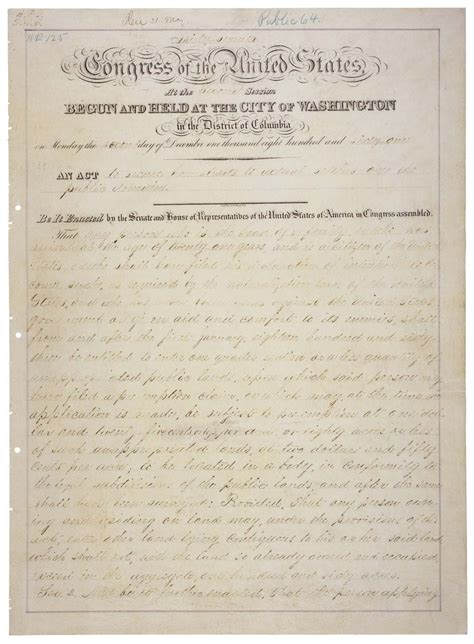 Public 64.
Congress of the United States,
At the second Session
BEGUN AND HELD AT THE CITY OF WASHINGTON
in the District of Columbia
on Monday the second day of December one thousand eight hundred and sixty-one
AN ACT to secure homesteads to actual settlers on the
public domain.
Be It Enacted by the Senate and House of Representatives of the United States of America in Congress assembled,
That any person who is the head of a family, or who has
arrived at the age of twenty one years and is a citizen of the United
States, or who shall have filed his declaration of intention to be
come such, as required by the naturalization laws of the United
States, and who has never borne arms against the United States
government or given aid and comfort to its enemies, shall
from and after the first January, eighteen hundred and sixty
three be entitled to enter one quarter section or a less quantity of
unappropriated public lands, upon which said person may
have filed a preemption claim, or which may, at the time the
application is made, be subject to preemption at one dol
lar and twenty five cents, or less, per acre; or eighty acres or less
of such unappropriated lands, at two dollars and fifty
cents per acre; to be located in a body, in conformity to
the legal subdivisions of the public lands, and after the same
shall have been surveyed: Provided, That any person own
ing and residing on land may, under the provisions of this
act, enter other land lying contiguous to his or her said land,
which shall not, with the land so already owned and occupied,
exceed in the aggregate one hundred and sixty acres.
Sec. 2. And be it further enacted, That the person applying